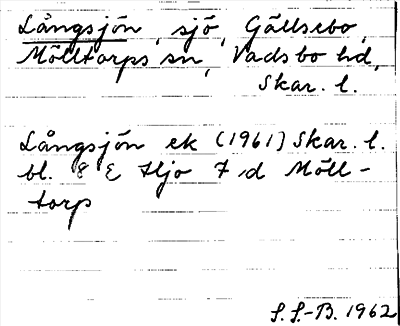 Långsjön, sjö, Gällsebo,
Mölltorps sn, Vadsbo hd,
Skar. l.
Långsjön ek (1961) Skar. l.
bl. 8 E Hjo 7 d Möll-
torp
S. S.-B. 1962